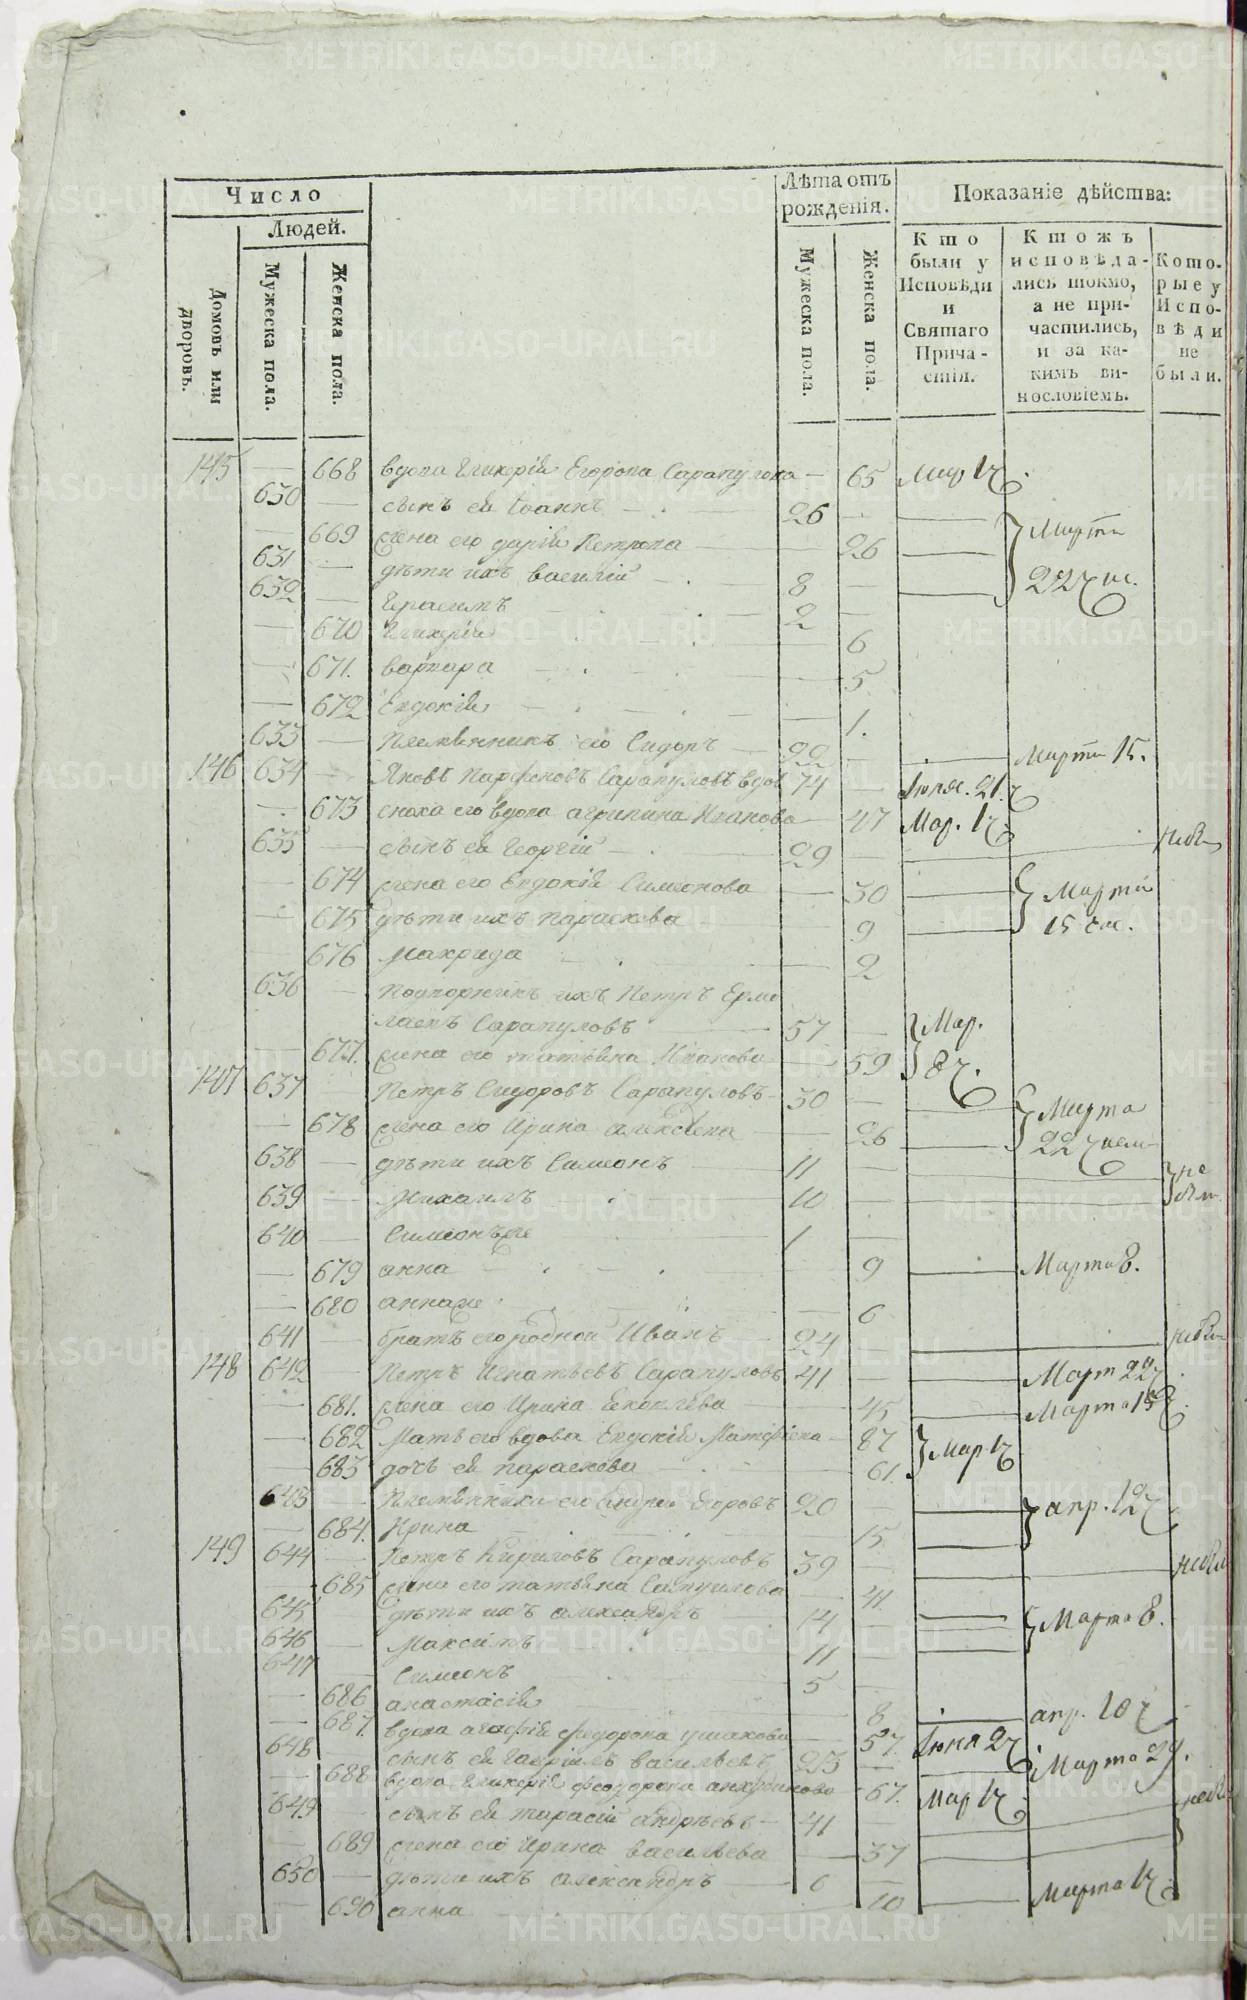 Число
Людей.
Домовъ или дворовъ.
Мужеска пола.
Женска пола.
Лѣта отъ рожденія.
Мужеска пола.
Женска пола.
Показаніе дѣйства:
Кто были у Исповѣди и Святаго Причастія.
Ктожъ исповѣдались токмо, а не причастились, и за какимъ винословіемъ.
Которые у Исповѣди не были.
145 — 668 вдова Гликерія Егорова Сарапулова — 65 Мар 17.
630 — сынъ ея Іоаннъ — 26
— 669 жена его дарія Петрова — 26 Марта
631 — дѣти ихъ василій — 8
632 — Герасимъ 2 — 22
— 670 Гликерія 6
— 671. варвара 5.
— 672 Евдокія — 1.
633 — Племянникъ его Сидоръ — 22 — Марта 15.
146 634 — Яковъ Парфеновъ Сарапуловъ вдов 74 — Іюня. 21.
— 673 сноха его вдова агрипина Иванова — 47 Мар. 17
635 — сынъ ея Георгій — 29 —
— 674 жена его Евдокія Симеонова — 30 — Марта
— 675 дѣти ихъ параскева 9 — 15
— 676 Макрида — 2
636 — Подворникъ ихъ Петръ Ермо
лаевъ Сарапуловъ — 57 — Мар.
— 677. жена его татьяна Иванова — 59 8
147 637 — Петръ Сидоровъ Сарапуловъ 30 — Марта
— 678 жена его Ирина алексѣева — 26 — 22
638 — дѣти ихъ Симеонъ — 11 — не
639 — Михаилъ 10 —
640 — Симеонъ же 1 —
— 679 анна 9 — Марта 8.
— 680 анна же — 6
641 — братъ его родной Иванъ — 24 —
148 642 — Петръ Игнатьевъ Сарапуловъ 41 — Март 22
— 681. жена его Ирина — 45 — Марта 15
— 682 Мать его вдова Евдокія Матфіева — 87 Мар 17
— 683 дочь ея параскева 61.
643 — Племянники его Андрей Егоровъ 20 — апр. 12
— 684. Ирина 15
149 644 — Петръ Кириловъ Сарапуловъ 39 —
— 685 жена его татьяна Самуилова — 41
645 — дѣти ихъ александръ 14 — Марта 8.
646 — Максимъ 11 —
647 — Симеонъ 5
— 686 анастасія — 8 — апр. 10
— 687. вдова агафія федорова ушакова — 57. Іюня 27
648 — сынъ ея Гавріилъ васильевъ 23 — Марта 29.
— 688 вдова Гликерія феодорова — 67. Мар 17
649 — сынъ ея тарасій андреевъ — 41 —
— 689 жена его Ирина васильева — 37 —
650 — дѣти ихъ александръ — 6 —
— 690 анна 10 — Марта 17
METRIKI.GASO-URAL.RU